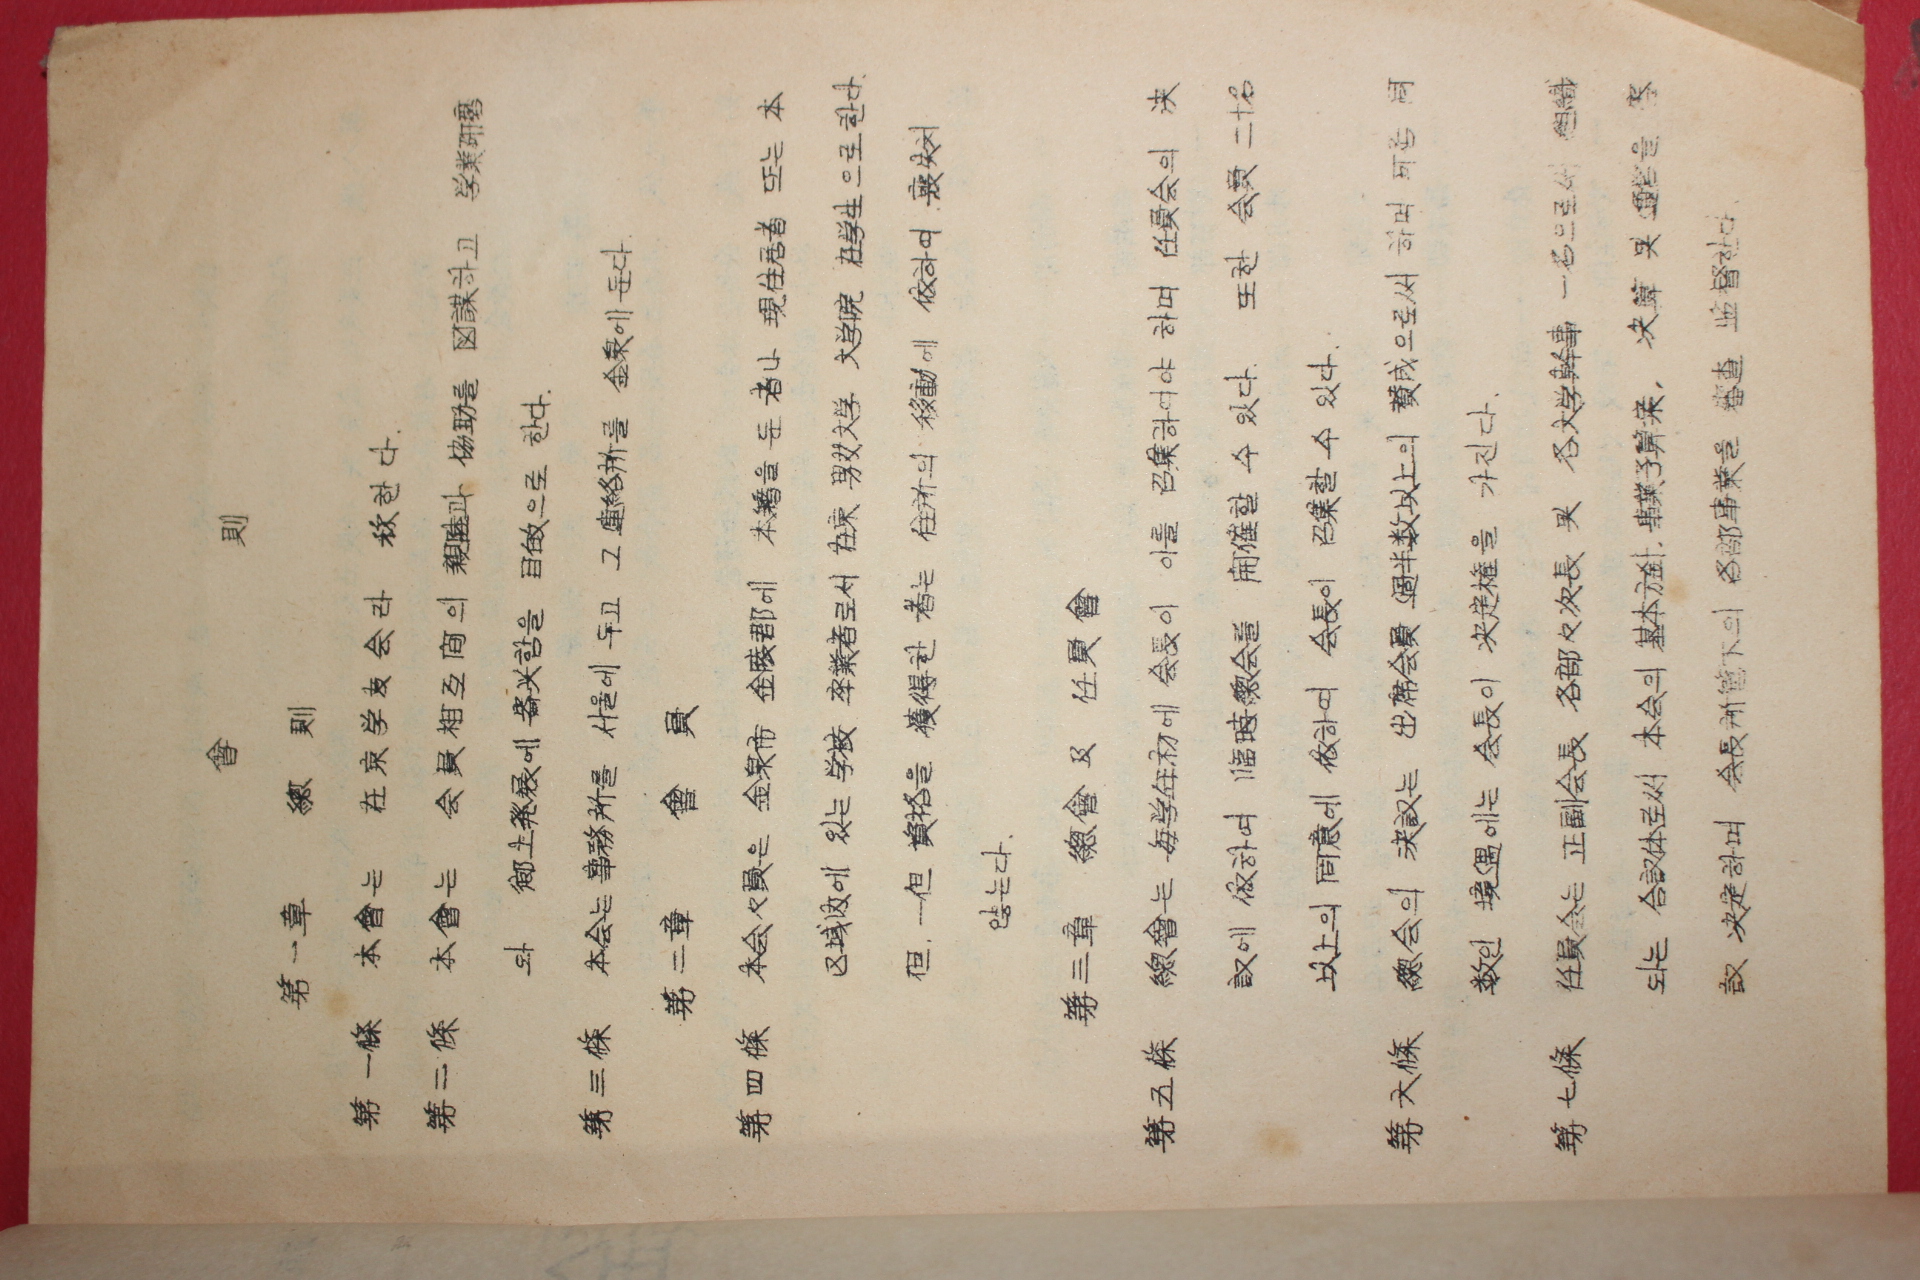 會 則
第一章 總 則
第一條 本會는 在京学友会라 称한다.
第二條 本會는 会員相互間의 親睦과 協助를 図謀하고 学業研磨
와 鄕土発展에 寄与함을 目的으로 한다.
第三條 本会는 事務所를 서울에 두고 그 連絡所를 金泉에 둔다.
第二章 會 員
第四條 本会々員은 金泉市 金陵郡에 本籍을 둔 者나 現住居者 또는 本
区域內에 있는 学校 卒業者로서 在京 男女大学 大学院 在学生으로 한다.
但, 一但 資格을 獲得한 者는 住所의 移動에 依하여 喪失치
않는다.
第三章 總會 及 任員會
第五條 總會는 每学年初에 会長이 이를 召集하여야 하며 任員会의 決
議에 依하여 臨時總会를 開催할 수 있다. 또한 会員 二十名
以上의 同意에 依하여 会長이 召集할 수 있다.
第六條 總会의 決議는 出席会員 過半数以上의 賛成으로써 하며 可否 同
数인 境遇에는 会長이 決定権을 가진다.
第七條 任員会는 正副会長 各部々次長 및 各大学幹事 一名으로서 組織
되는 合議体로써 本会의 基本方針, 事業予算案, 決算 및 를
議決定하며 会長所管下의 各部事業을 審査 監督한다.